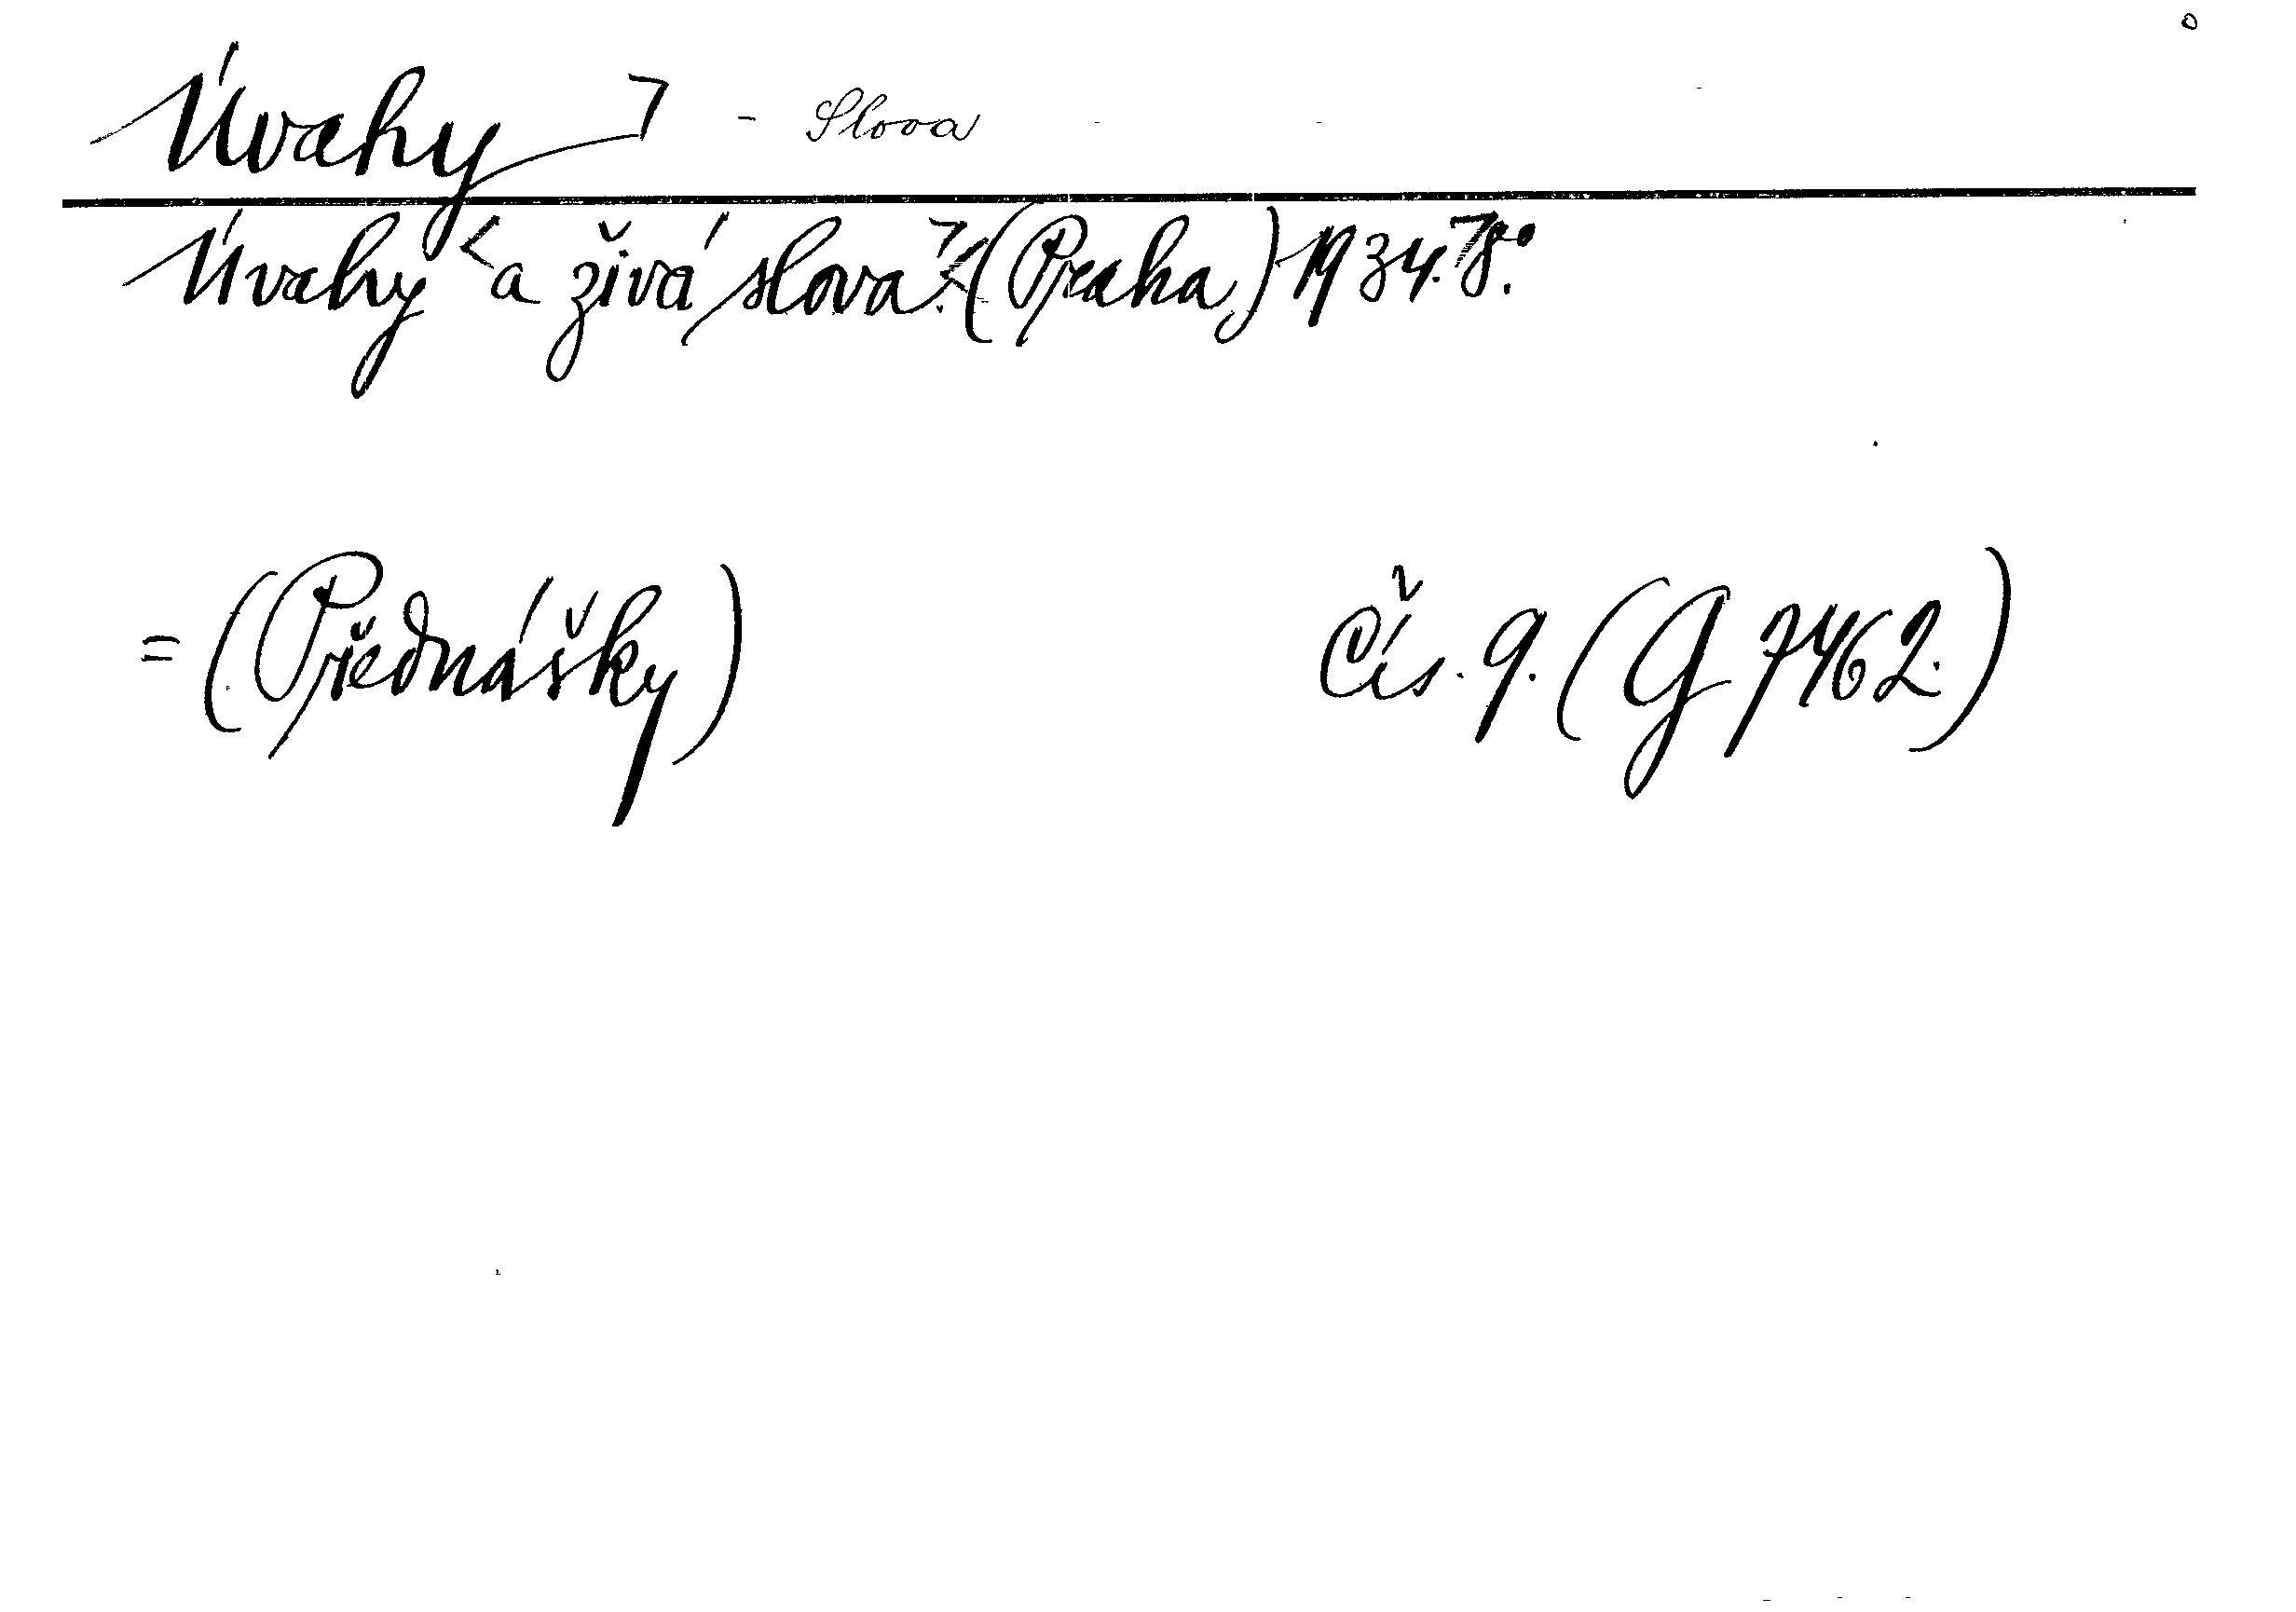 Úvahy - Slova
Úvahy a živá slova. (Praha,) 1934. 8°.
= (Přednášky) Čís. 9. (G 7462.)